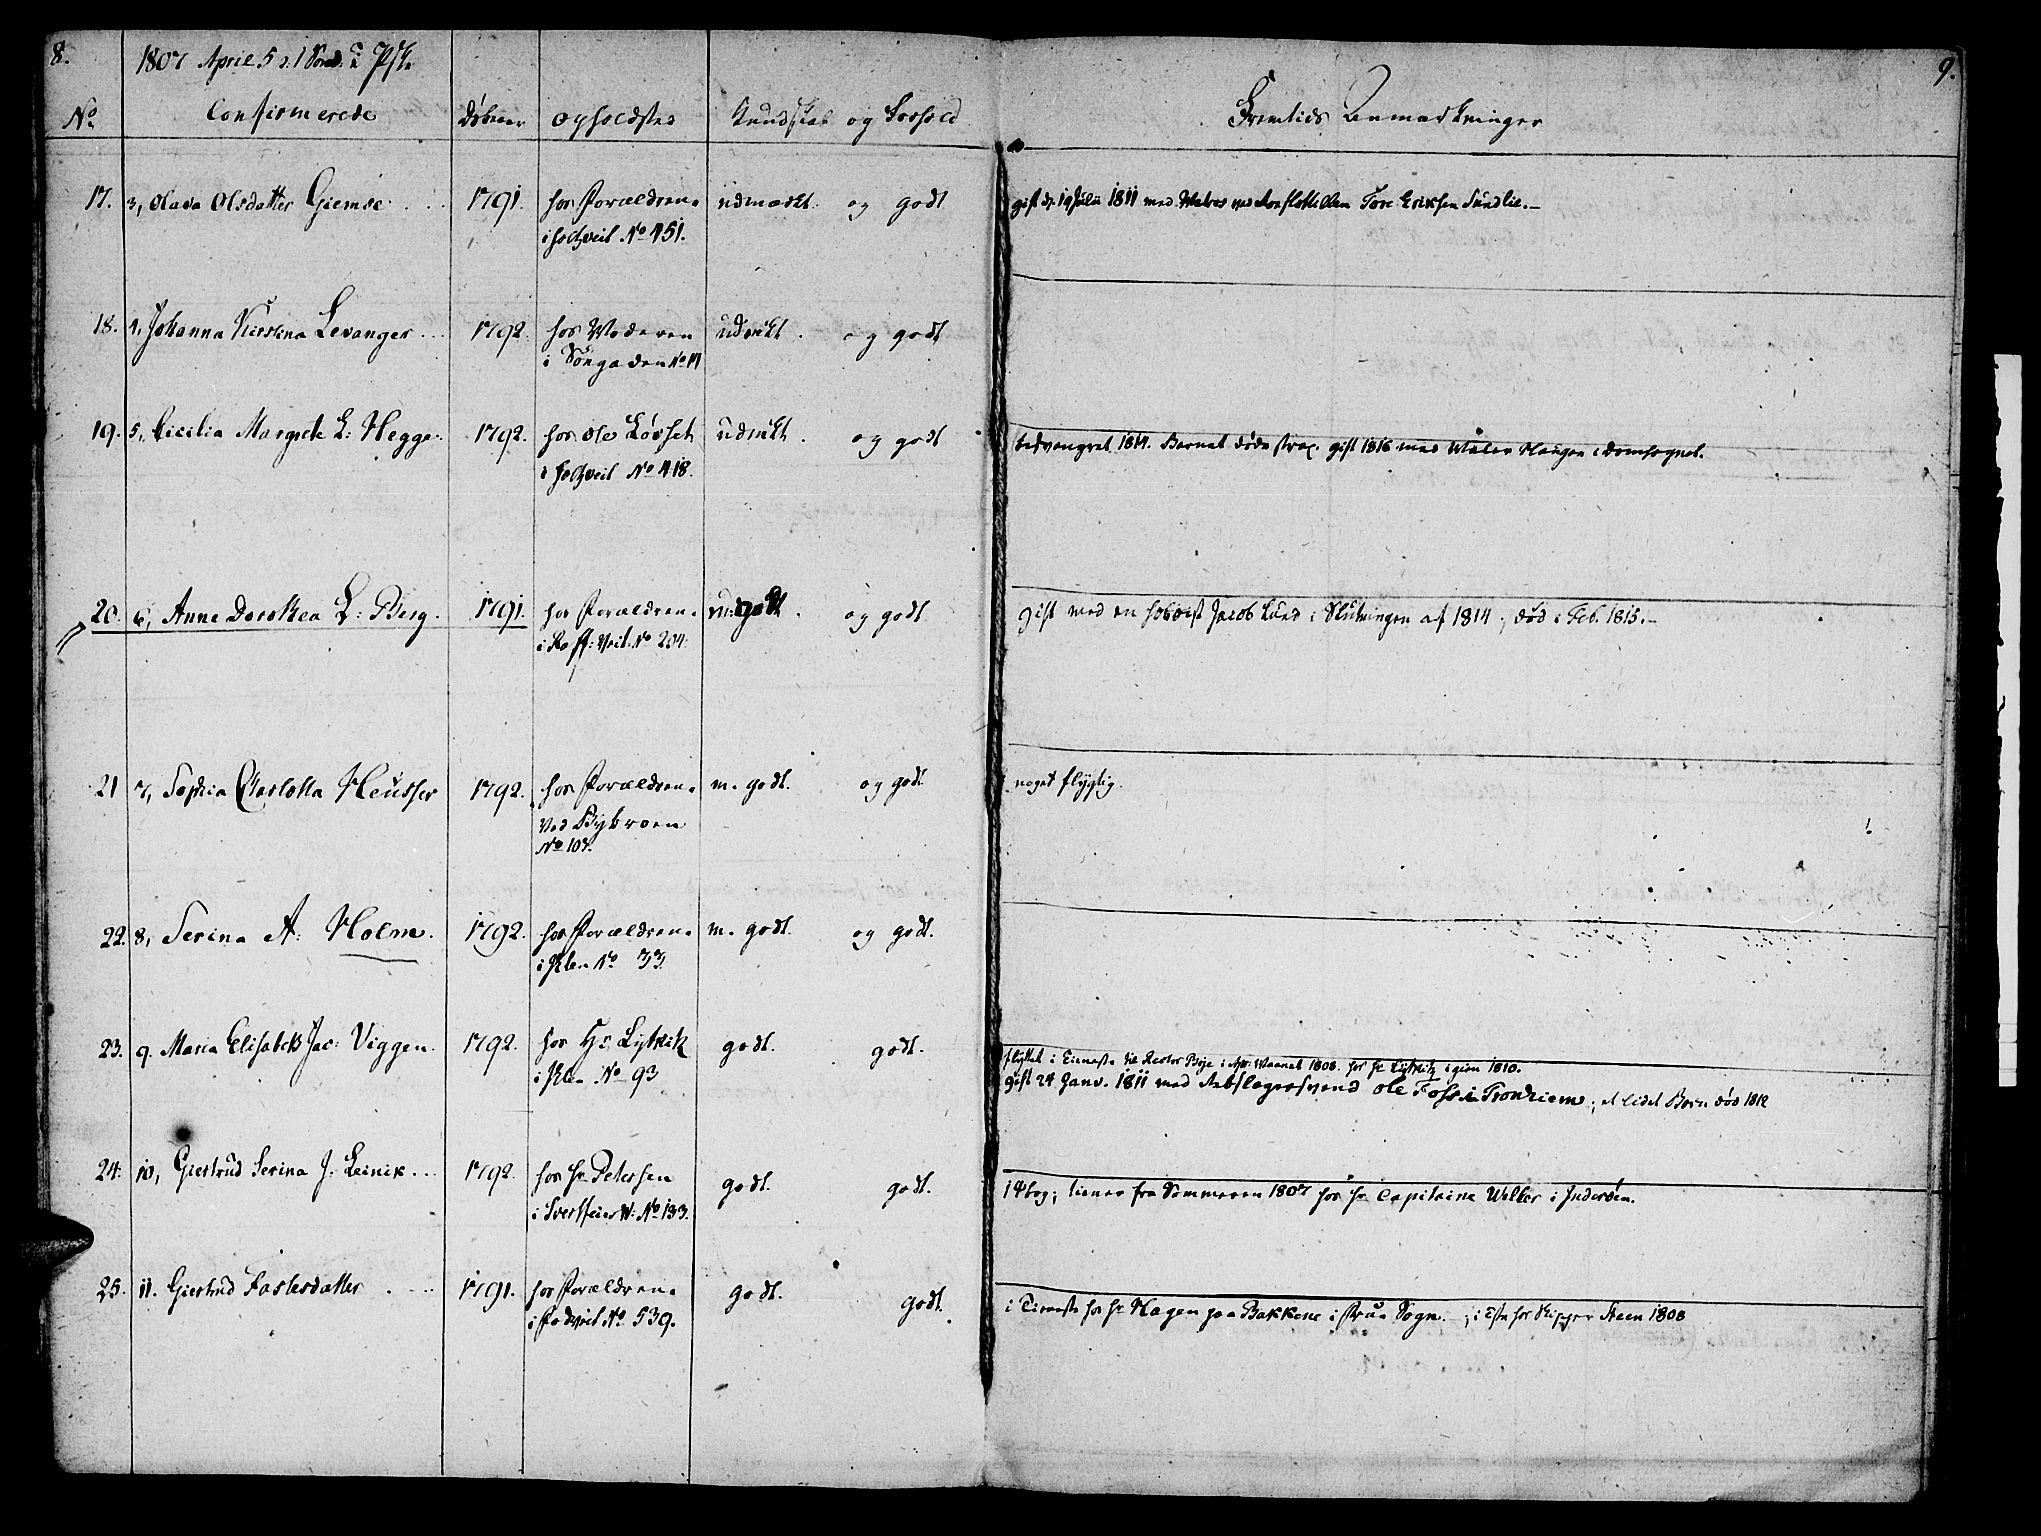 8.
1807 April 5 2: 1 Sønd: P: Pske
No
Confirmerede
Døbeaar
Opholdsted
Kundskab og Forhold
17. 3, Olava Olsdatter Giemse
1791.
hos Forældrene
i No 451.
udmærkt. og godt
18. 4, Johanna Kierstina Levanger
1792.
hos Moderen
i No 11
udmkt. og godt
19. 5, Cicilia Margrete L: Hegge.
1792.
hos Ole Løvset
i No 418.
udmkt. og godt
20. 6, Anne Dorothea L: Berg.
1791.
hos Forældrene
i Veit: No 204.
godt. og godt
21 7, Sophia Charlotta Heusser
1792.
hos Forældrene
ved Bybroen
No 107.
m. godt. og godt
22. 8, Serina A: Holm.
1792.
hos Forældrene
i Ihlen No 33.
m. godt. og godt.
23. 9. Maria Elisabeth Jac: Viggen.
1792.
hos Hr. Lytkik
i Ihlen No 93
godt. godt.
24. 10, Giertrud Serina J. Leinik
1792.
hos Hr Petersen
i No 133.
godt. godt.
25. 11. Giertrud Fastesdatter
1791.
hos Forældrene
i No 539.
godt. godt.
9.
Fremtids Anmærkninger
gift d. 19 Julii 1811 med Matros ved Roeflotillen Tore Eriksen Sundlie.
besvangret 1814. Barnet døde strax. gift 1816 med Maler Haugen i Domsognet.
gift med en Hoboist Jacob Lund i Slutningen af 1814; død i Feb. 1815.
noget flygtig.
flyttet i Tieneste til Rector Boje i Apr. Maaned 1808. hos Hr Lytkik igien 1810.
gift 24 Janv. 1811 med Rebslagersvend Ole Foss i Trondhiem; et lidet Barn død 1812
tiener fra Sommeren 1807 hos Hr Capitaine Welber i Inderøen.
i Tieneste hos Hr Hagen paa Bakkene i Frue Sogn; i Tste hos Skipper Steen 1808